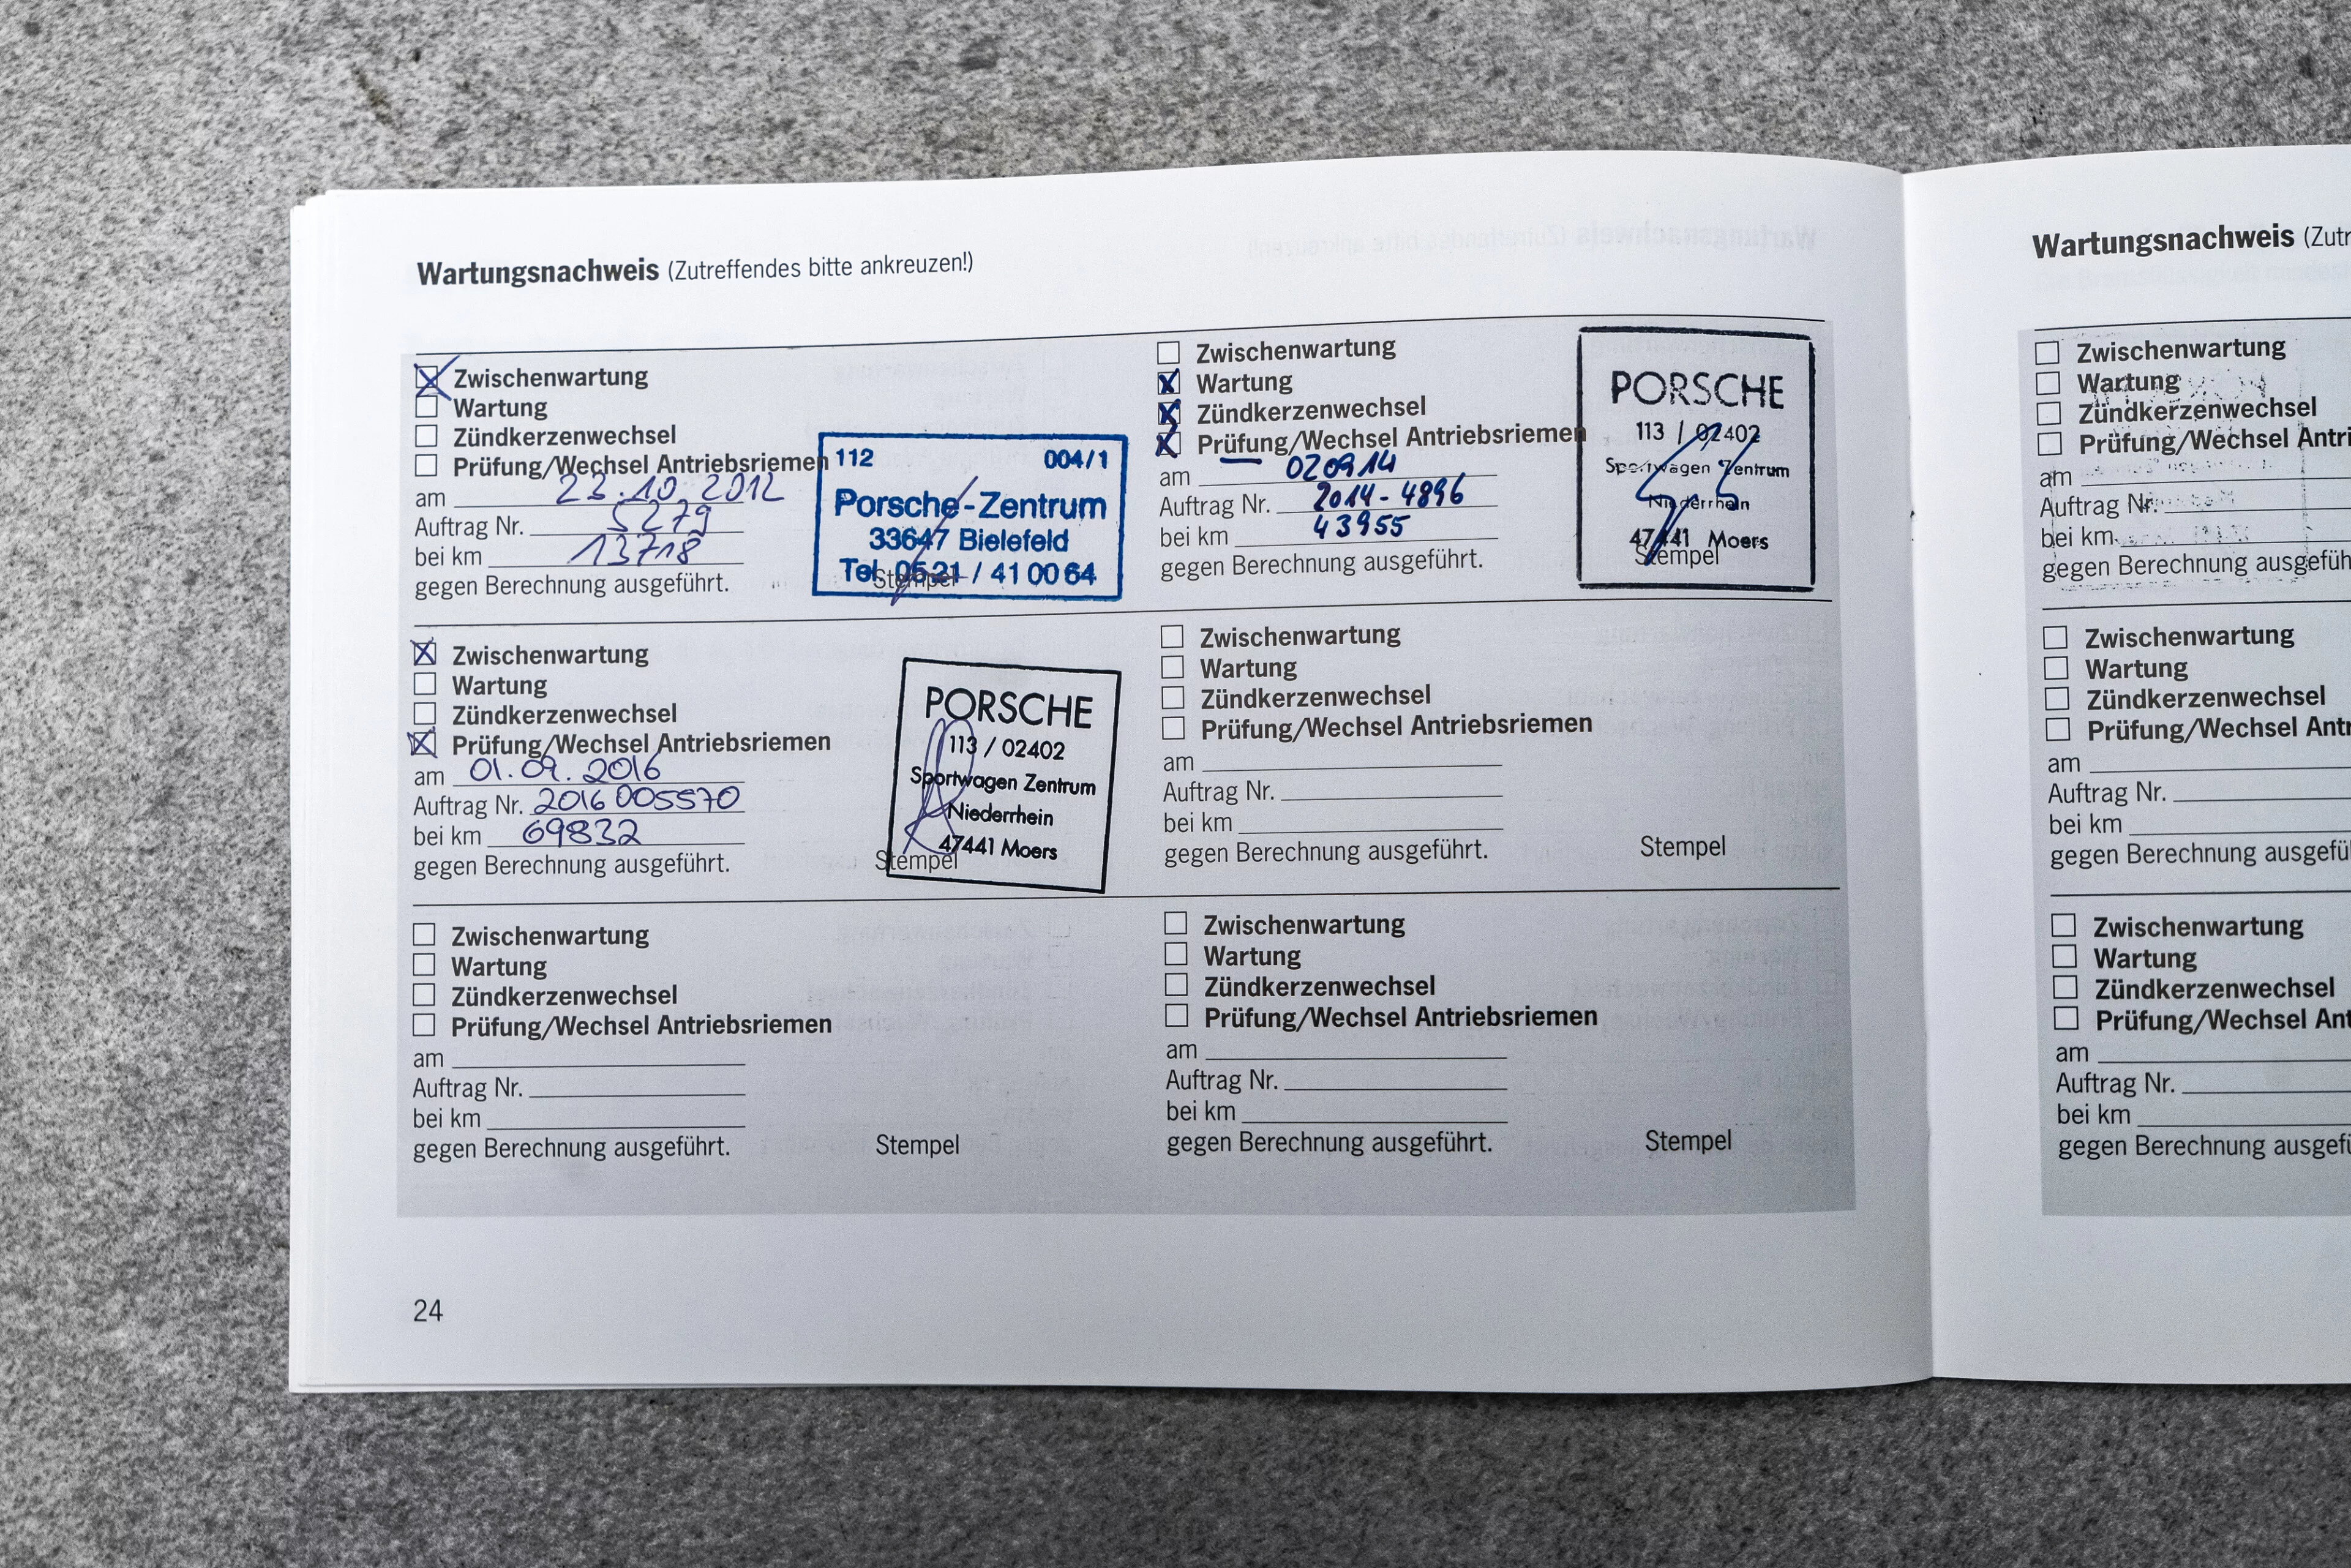 Wartungsnachweis (Zutreffendes bitte ankreuzen!)
Zwischenwartung
Wartung
Zündkerzenwechsel
Prüfung/Wechsel Antriebsriemen
am 23.10.2012
Auftrag Nr. 5279
bei km 13718
gegen Berechnung ausgeführt.
112 004/1
Porsche-Zentrum
33647 Bielefeld
Tel. 0521 / 41 00 64
Stempel
Zwischenwartung
Wartung
Zündkerzenwechsel
Prüfung/Wechsel Antriebsriemen
am 020914
Auftrag Nr. 2014-4896
bei km 43955
gegen Berechnung ausgeführt.
PORSCHE
113 / 02402
Sportwagen Zentrum
Niederrhein
47441 Moers
Stempel
Zwischenwartung
Wartung
Zündkerzenwechsel
Prüfung/Wechsel Antriebsriemen
am 01.09.2016
Auftrag Nr. 2016005570
bei km 69832
gegen Berechnung ausgeführt.
PORSCHE
113 / 02402
Sportwagen Zentrum
Niederrhein
47441 Moers
Stempel
Zwischenwartung
Wartung
Zündkerzenwechsel
Prüfung/Wechsel Antriebsriemen
am
Auftrag Nr.
bei km
gegen Berechnung ausgeführt.
Stempel
Zwischenwartung
Wartung
Zündkerzenwechsel
Prüfung/Wechsel Antriebsriemen
am
Auftrag Nr.
bei km
gegen Berechnung ausgeführt.
Stempel
Zwischenwartung
Wartung
Zündkerzenwechsel
Prüfung/Wechsel Antriebsriemen
am
Auftrag Nr.
bei km
gegen Berechnung ausgeführt.
Stempel
24
Wartungsnachweis (Zutr
Zwischenwartung
Wartung
Zündkerzenwechsel
Prüfung/Wechsel Antri
am
Auftrag Nr.
bei km
gegen Berechnung ausgefüh
Zwischenwartung
Wartung
Zündkerzenwechsel
Prüfung/Wechsel Antr
am
Auftrag Nr.
bei km
gegen Berechnung ausgefü
Zwischenwartung
Wartung
Zündkerzenwechsel
Prüfung/Wechsel Ant
am
Auftrag Nr.
bei km
gegen Berechnung ausgefü